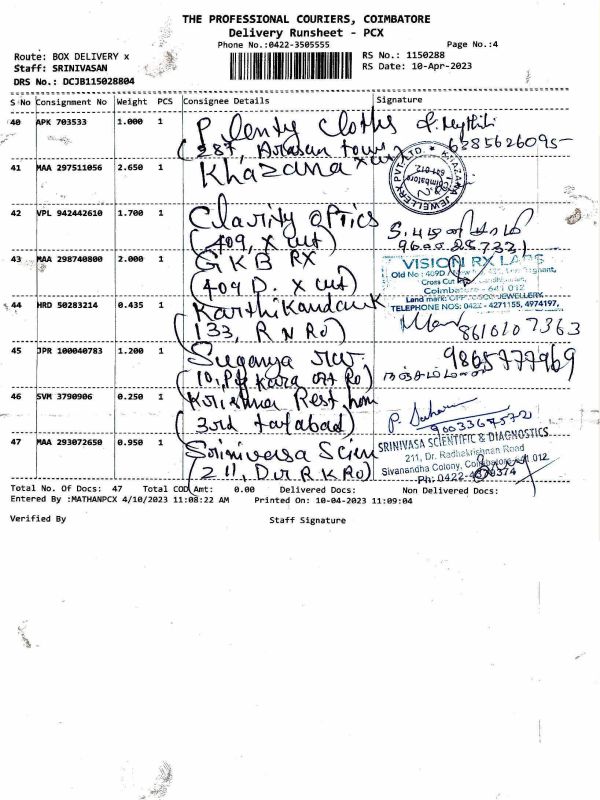 THE PROFESSIONAL COURIERS, COIMBATORE
Delivery Runsheet - PCX
Phone No.:0422-3505555
Page No.:4
Route: BOX DELIVERY x
Staff: SRINIVASAN
DRS No.: DCJB115028804
RS No.: 1150288
RS Date: 10-Apr-2023
S No Consignment No Weight PCS Consignee Details Signature
40 APK 703533 1.000 1 Plenty Cloths
6285626095
(287, Arasan tower, x cut)
41 MAA 297511056 2.650 1 Khazana
KHAZANA JEWELLERY PVT. LTD.
Coimbatore
641 012
42 VPL 942442610 1.700 1 Clarity optics
(409, x cut)
43 MAA 298740800 2.000 1 GKB RX
(409 D. x cut)
VISION RX LABS
Cross Cut
Coimbatore - 641 012
TELEPHONE NOS: 0422 - 4271155, 4974197,
44 HRD 50283214 0.435 1
133, R N Ro)
8610107363
45 JPR 100040783 1.200 1 Suganya
9865777969
46 SVM 3790906 0.250 1 Krishna Rest
(3rd tatabad)
47 MAA 293072650 0.950 1 Srinivasa Scien
(211, Dr. R K Ro)
SRINIVASA SCIENTIFIC & DIAGNOSTICS
211, Dr. Radhakrishnan Road
Sivanandha Colony, Coimbatore-641 012.
Total No. Of Docs: 47 Total COD Amt: 0.00 Delivered Docs: Non Delivered Docs:
Entered By :MATHANPCX 4/10/2023 11:08:22 AM Printed On: 10-04-2023 11:09:04
Verified By Staff Signature